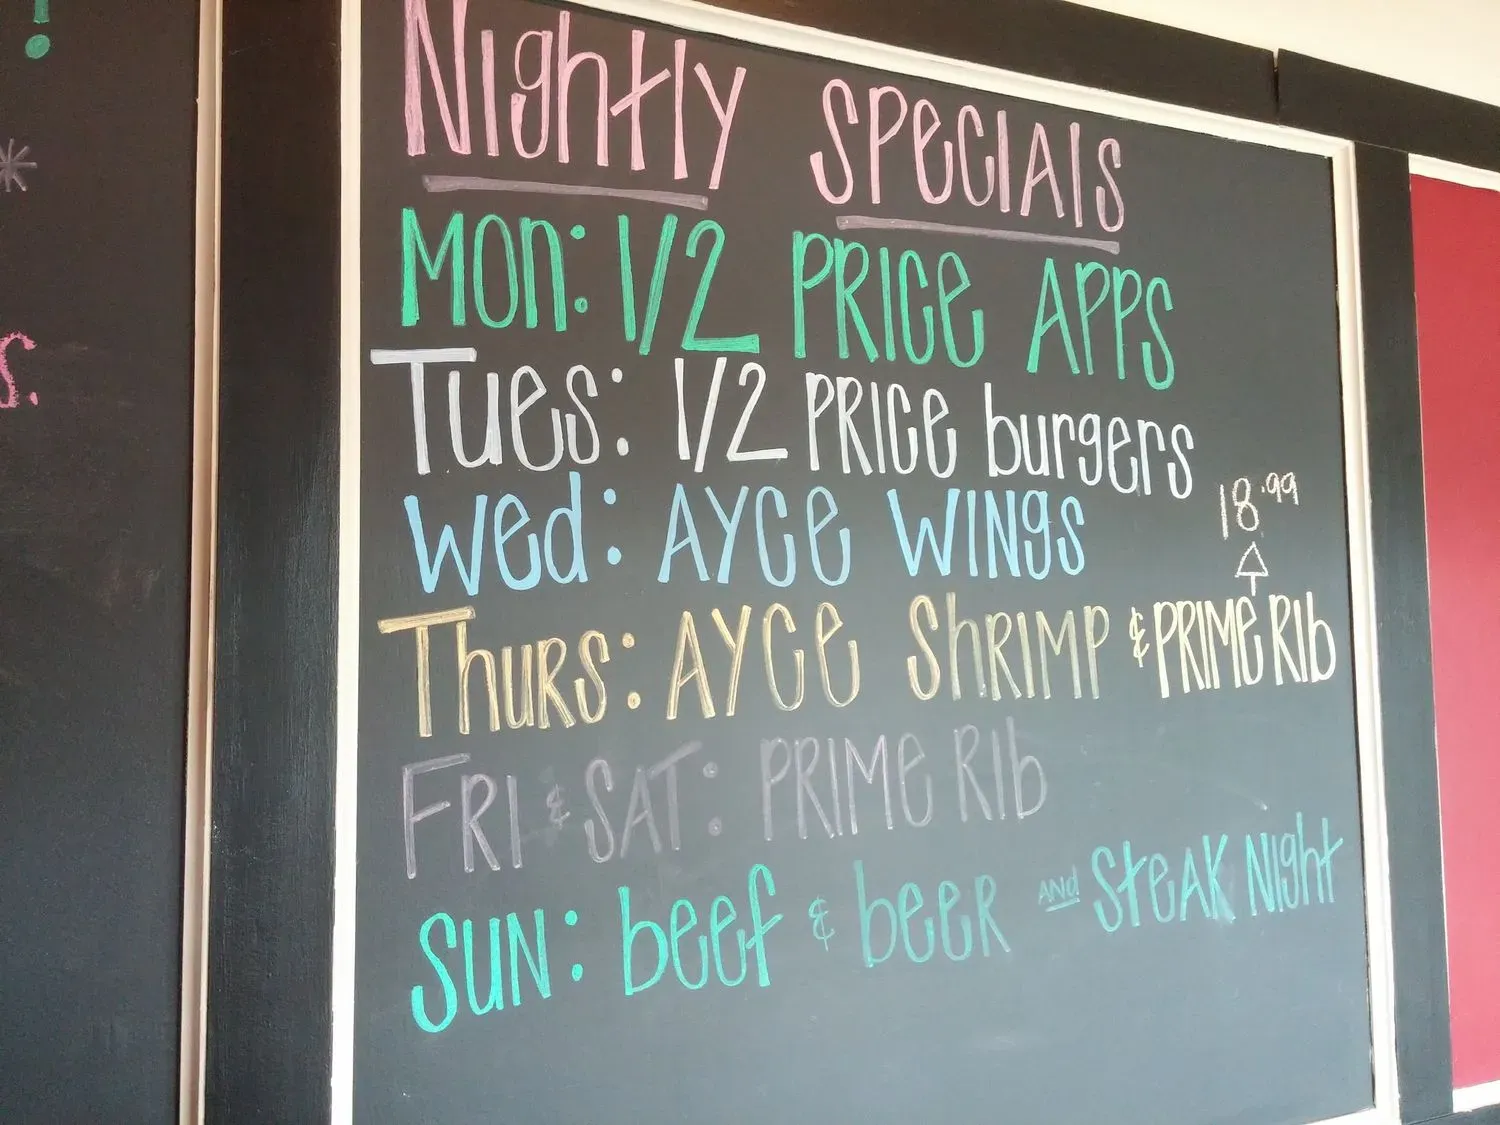 Nightly Specials
Mon: 1/2 PRICE APPS
Tues: 1/2 PRICE burgers
Wed: AYCE WINgs
18.99
Thurs: AYCE ShRIMP & PRIME RIb
FRI & SAT: PRIME RIb
SUN: beef & beer AND Steak Night
!
*
s.